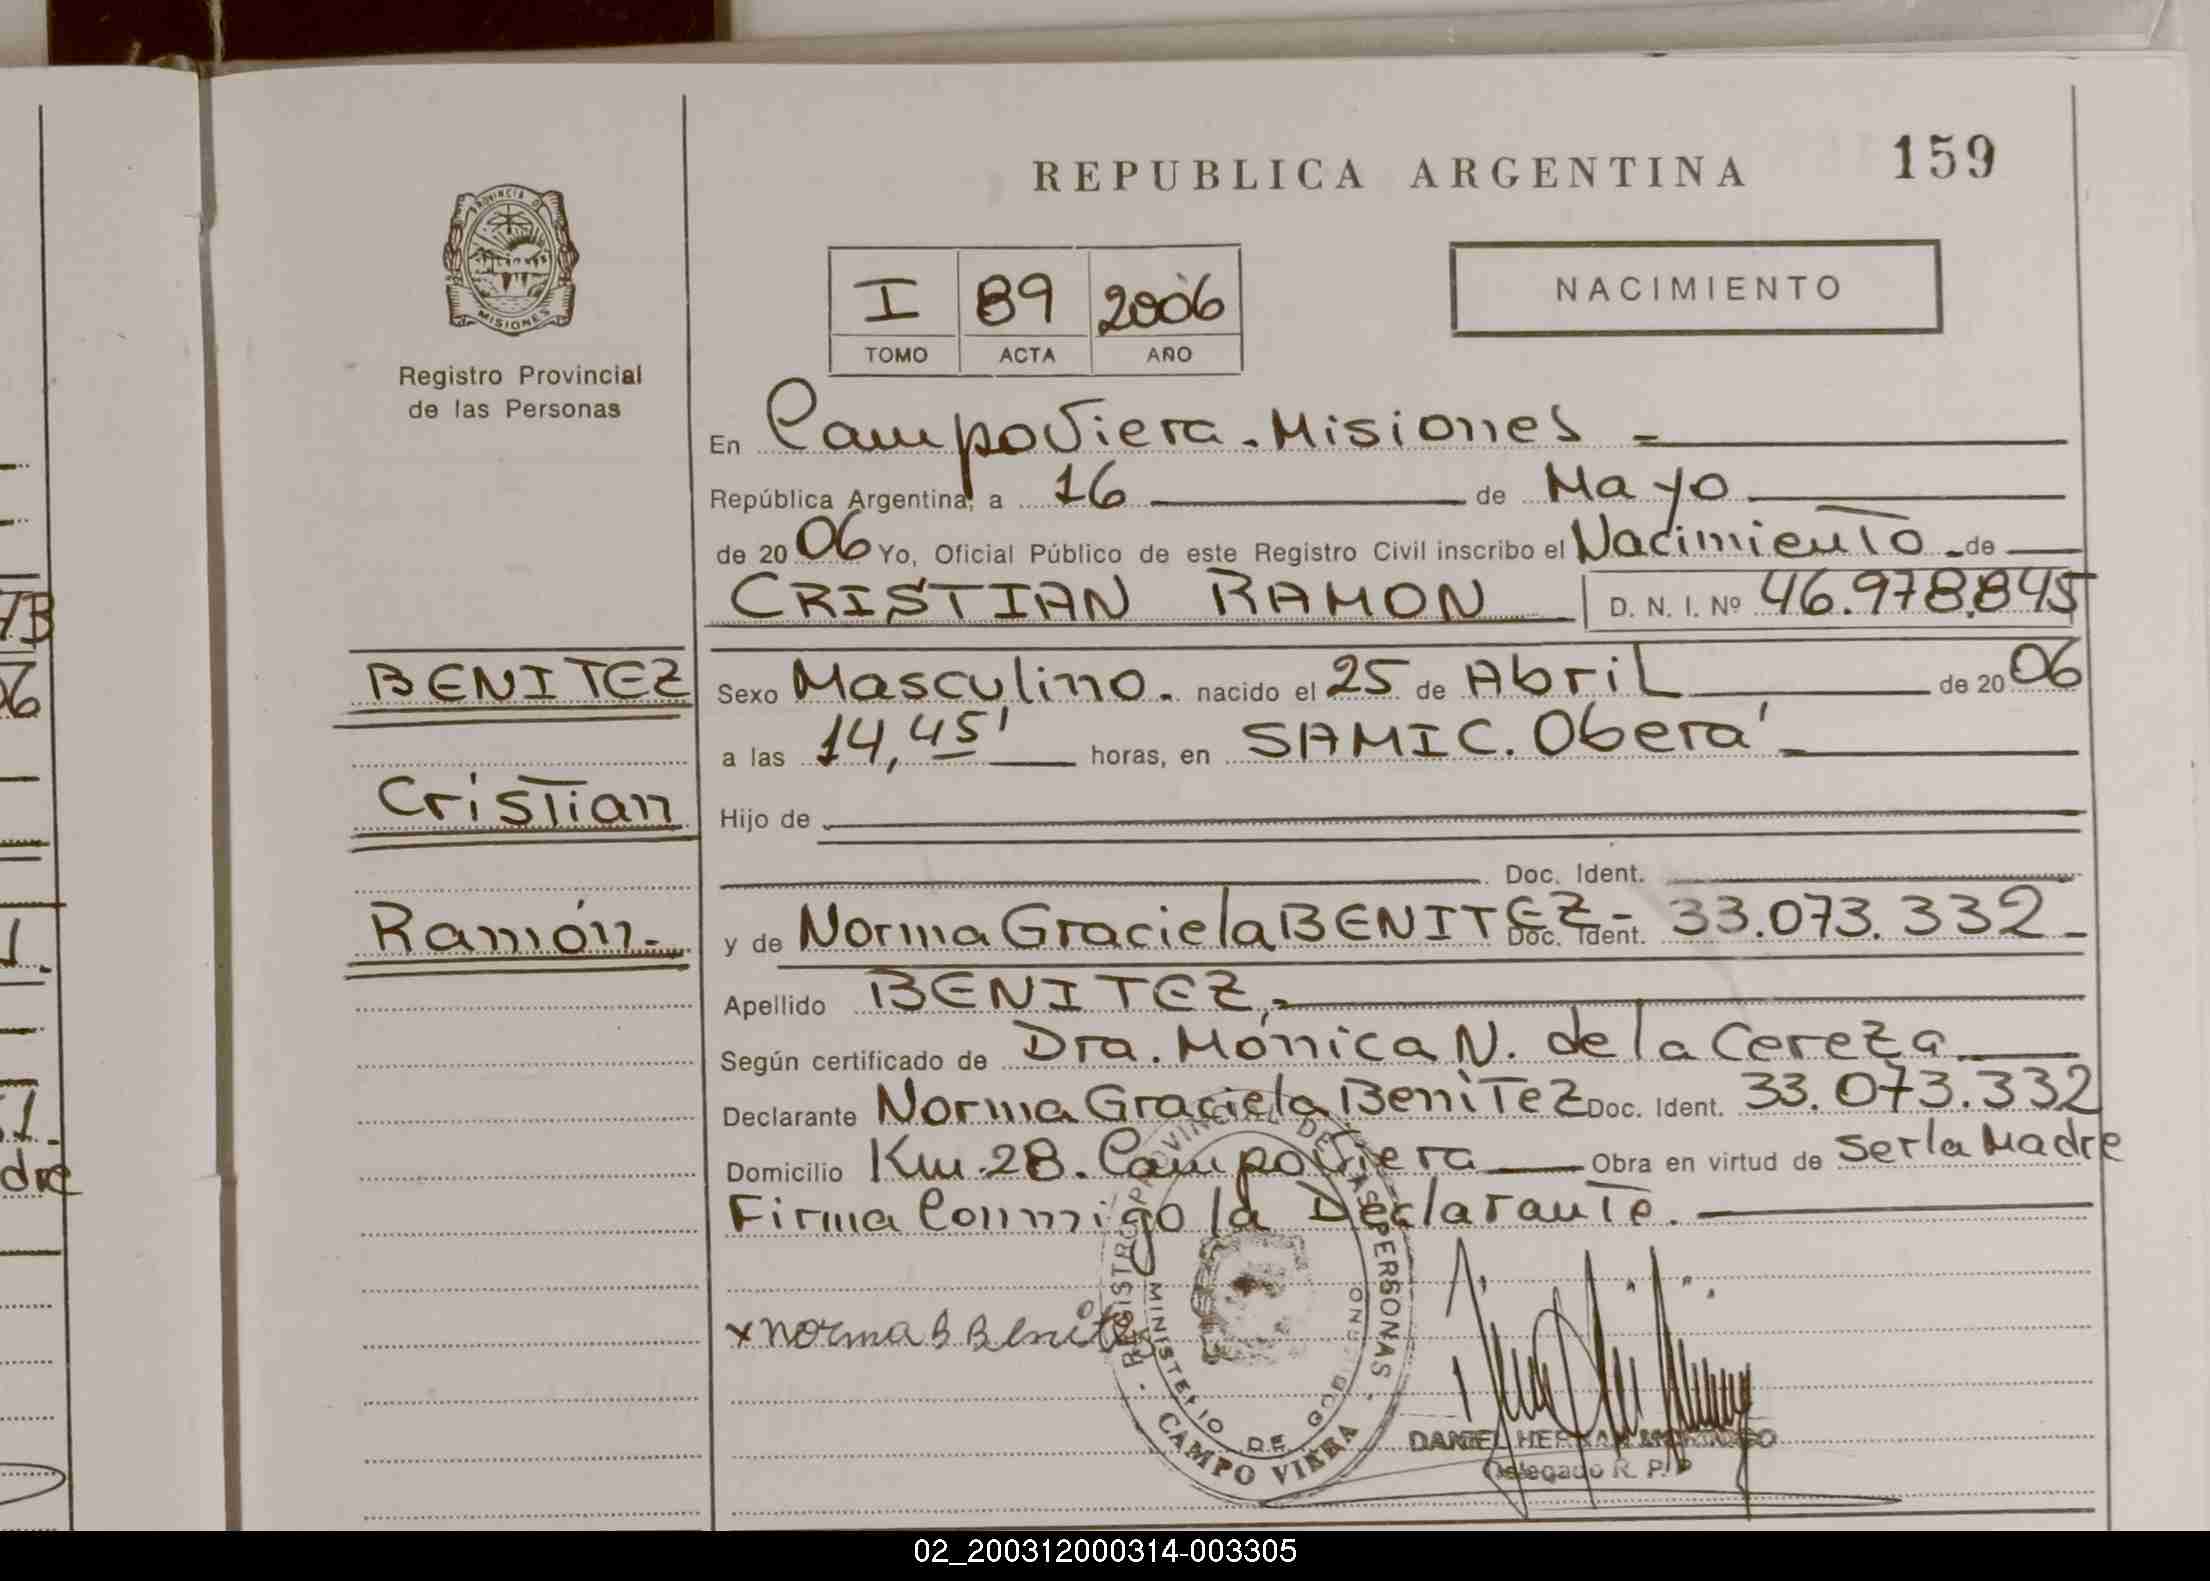 REPUBLICA ARGENTINA
159
PROVINCIA D
MISIONES
Registro Provincial
de las Personas
I 89 2006
TOMO ACTA AÑO
NACIMIENTO
En Campo Viera - Misiones
República Argentina, a 16 de Mayo
de 2006 Yo, Oficial Público de este Registro Civil inscribo el Nacimiento de
CRISTIAN RAMON D. N. I. Nº 46.978.845
BENITEZ
Cristian
Ramón.-
Sexo Masculino. nacido el 25 de Abril de 2006
a las 14,45' horas, en SAMIC. Oberá
Hijo de
Doc. Ident.
y de Norma Graciela BENITEZ - Doc. Ident. 33.073.332
Apellido BENITEZ,
Según certificado de Dra. Mónica N. de la Cereza
Declarante Norma Graciela Benitez Doc. Ident. 33.073.332
Domicilio Km. 28. Campo Viera Obra en virtud de Ser la Madre
Firma Conmigo la Declarante.
x norma B Benite
REGISTRO PROVINCIAL DE LAS PERSONAS
MINISTERIO DE GOBIERNO
CAMPO VIERA
DANIEL HERNAN
Delegado R. P. P
06
1.
dre
02_200312000314-003305